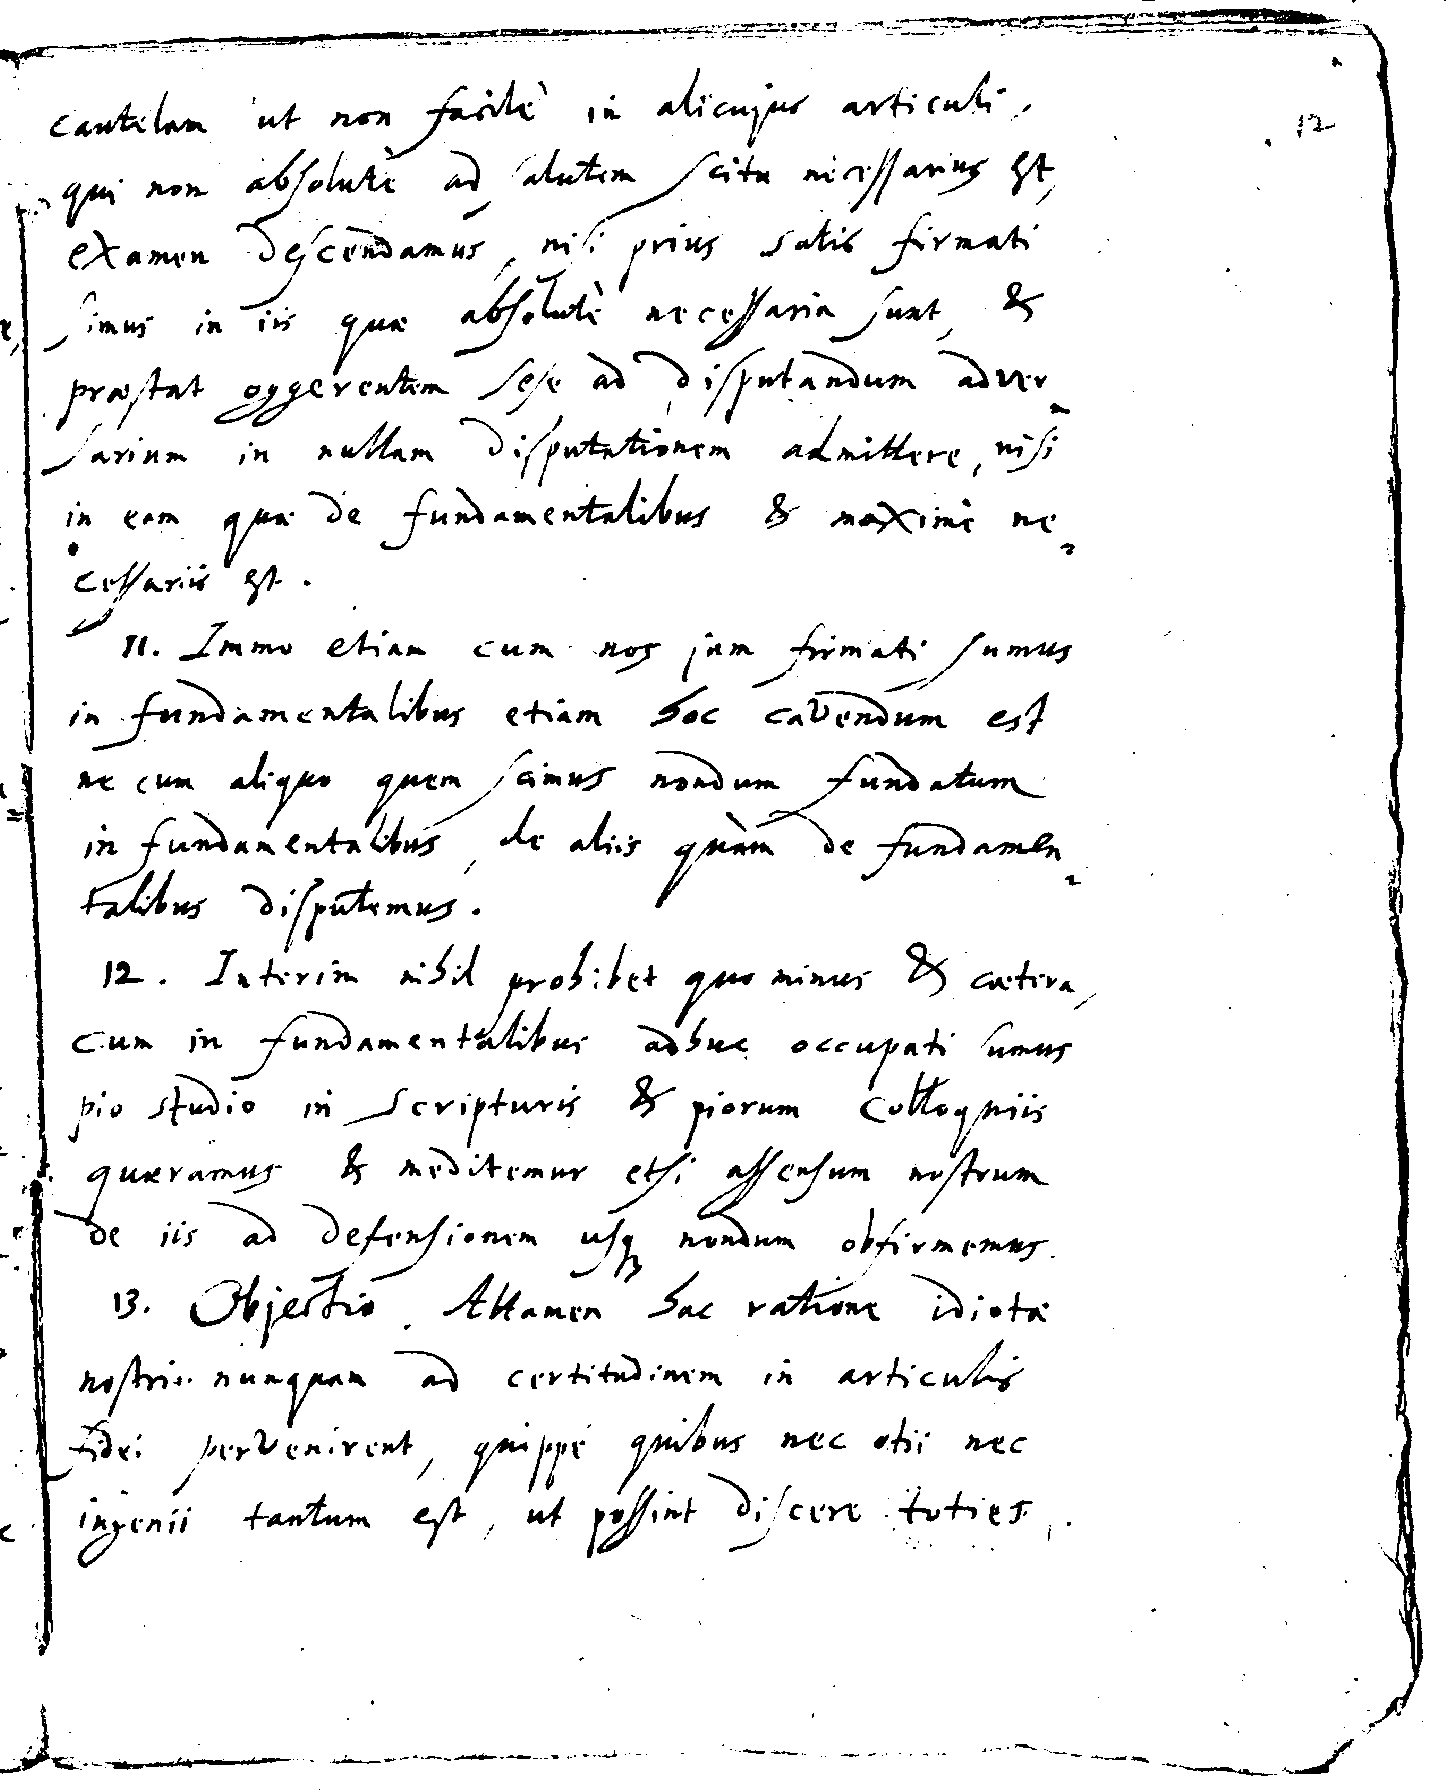 12
cautelam ut non facilè in alicujus articuli,
qui non absolutè ad salutem scitu necessarius est,
examen descendamus, nisi prius satis firmati
simus in iis quæ absolutè necessaria sunt, &
præstat oggerentem sese ad disputandum adver-
sarium in nullam disputationem admittere, nisi
in eam quæ de fundamentalibus & maximè ne-
cessariis est.
11. Immo etiam cum nos jam firmati sumus
in fundamentalibus etiam hoc cavendum est
ne cum aliquo quem scimus nondum fundatum
in fundamentalibus, de aliis quàm de fundamen-
talibus disputemus.
12. Interim nihil prohibet quo minus & cætera,
cum in fundamentalibus adhuc occupati sumus
pio studio in scripturis & piorum Colloquiis
quæramus & meditemur etsi assensum nostrum
de iis ad defensionem usq nondum obfirmemus.
13. Objectio. Attamen hac ratione idiotæ
nostri nunquam ad certitudinem in articulis
fidei pervenirent, quippe quibus nec otii nec
ingenii tantum est, ut possint discere toties,